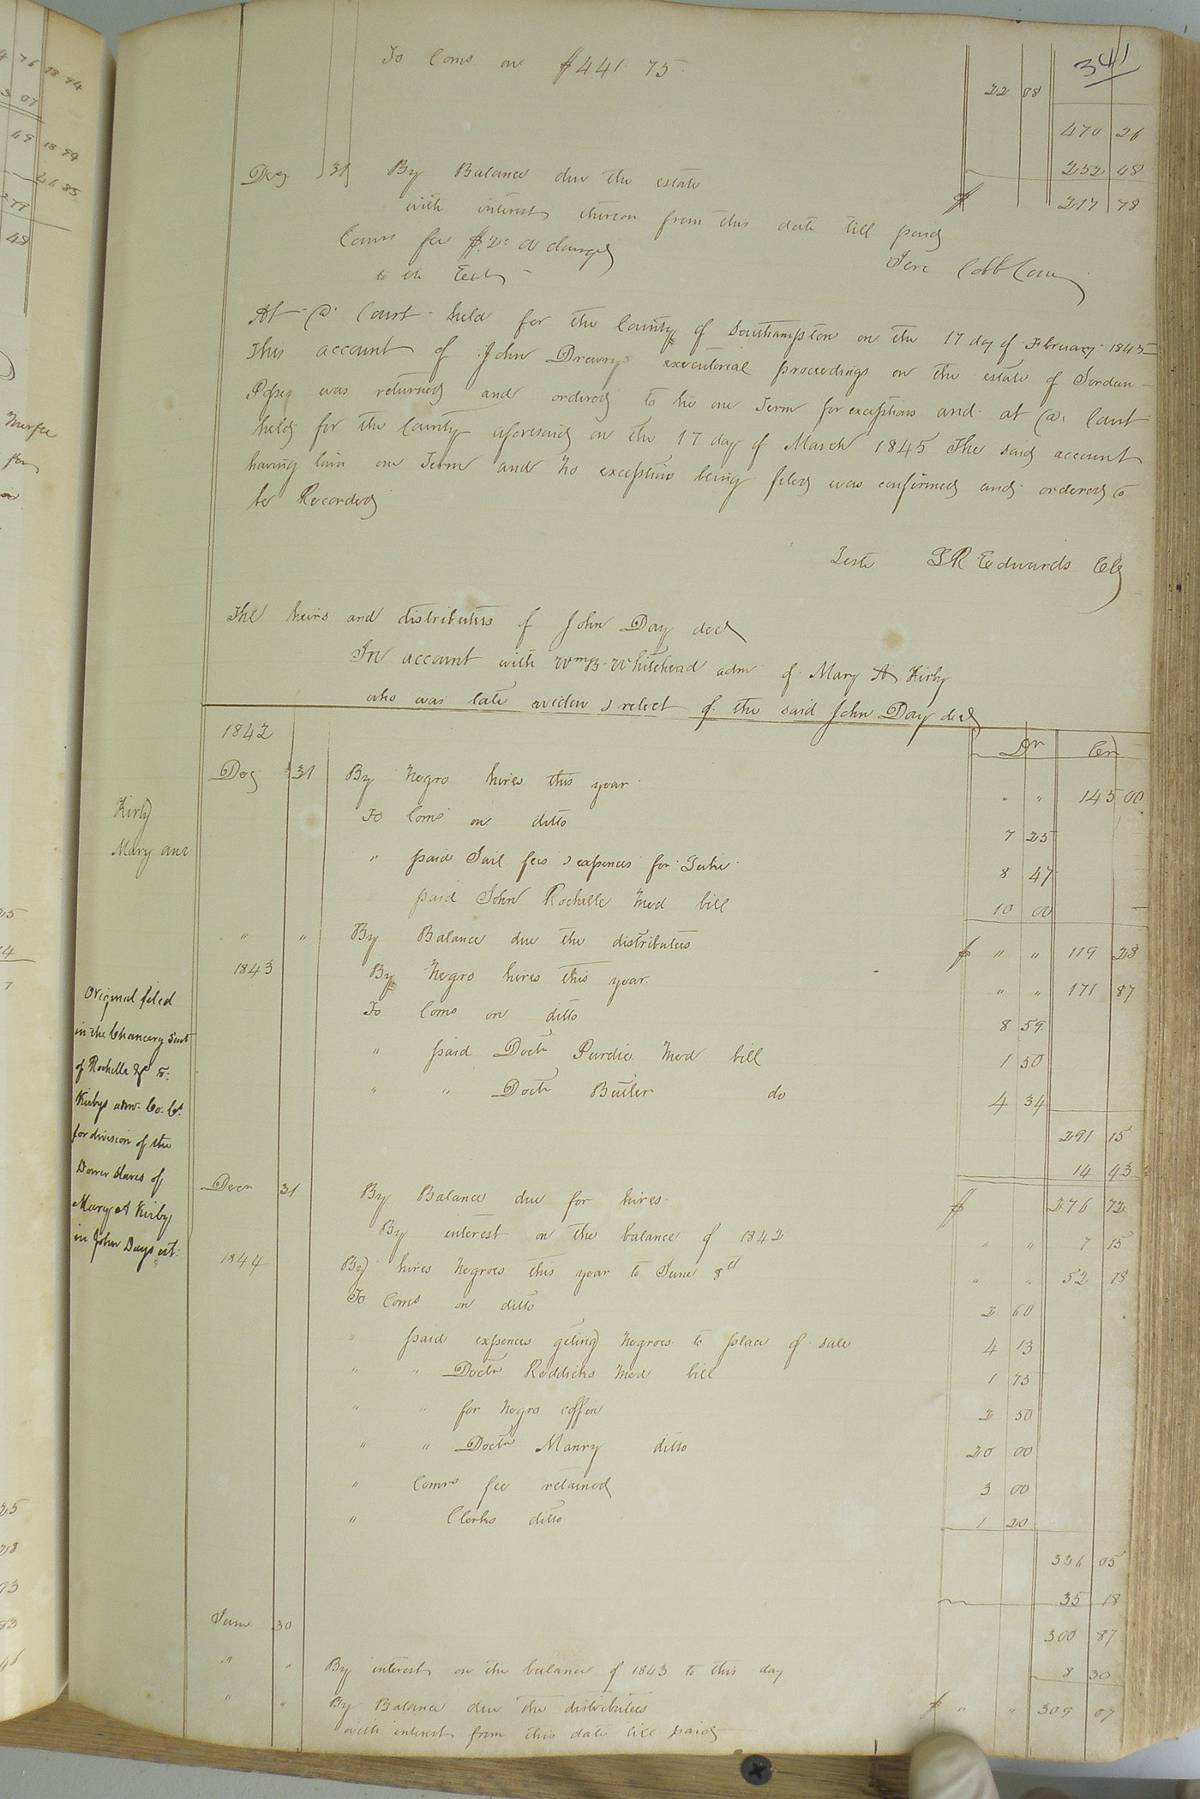 341
To Coms on $441 75 22 08
470 26
252 48
Decr 31 By Balance due the estate $ 217 78
with interest thereon from this date till paid
Coms fee $2. 00 charged Jere Cobb Com
to the Testr
At a Court held for the County of Southampton on the 17 day of February 1845
This account of John Drewrys executorial proceedings on the estate of Jordan
Posey was returned and ordered to lie one Term for exceptions and at a Court
held for the County aforesaid on the 17 day of March 1845 The said account
having lain one Term and no exceptions being filed was confirmed and ordered to
be Recorded
Teste L R Edwards Clk
The heirs and distributees of John Day decd
In account with Wm B. Whitehead adm of Mary A Kirby
who was late widow & relict of the said John Day decd
1842 Dr Cr
Decr 31 By Negro hires this year " " 145 00
To Coms on ditto 7 25
" paid Jail fees & expences for 8 47
paid John Rochelle Med bill 10 00
" " By Balance due the distributees $ " " 119 28
1843 By Negro hires this year " " 171 87
To Coms on ditto 8 59
" paid Doctr Purdie Med bill 1 50
" " Doctr Butler do 4 34
291 15
14 43
Decr 31 By Balance due for hires $ 276 72
By interest on the balance of 1842 " " 7 15
1844 By hires Negroes this year to June 8th " " 52 18
To Coms on ditto 2 60
" paid expences geting Negroes to place of sale 4 13
" " Doctr Reddicks Med bill 1 75
" " for Negro coffin 2 50
" " Doctr Manry ditto 20 00
" Comrs fee retained 3 00
" Clerks ditto 1 20
336 05
35 18
June 30 300 87
" " By interest on the balance of 1843 to this day 8 30
" " By Balance due the distributees $ " " 309 07
with interest from this date till paid
Kirby
Mary ann
Original filed
in the Chancery Suit
of Rochelle &c vs.
Kirbys adm. Co. Ct.
for division of the
Dower slaves of
Mary A Kirby
in John Days est.